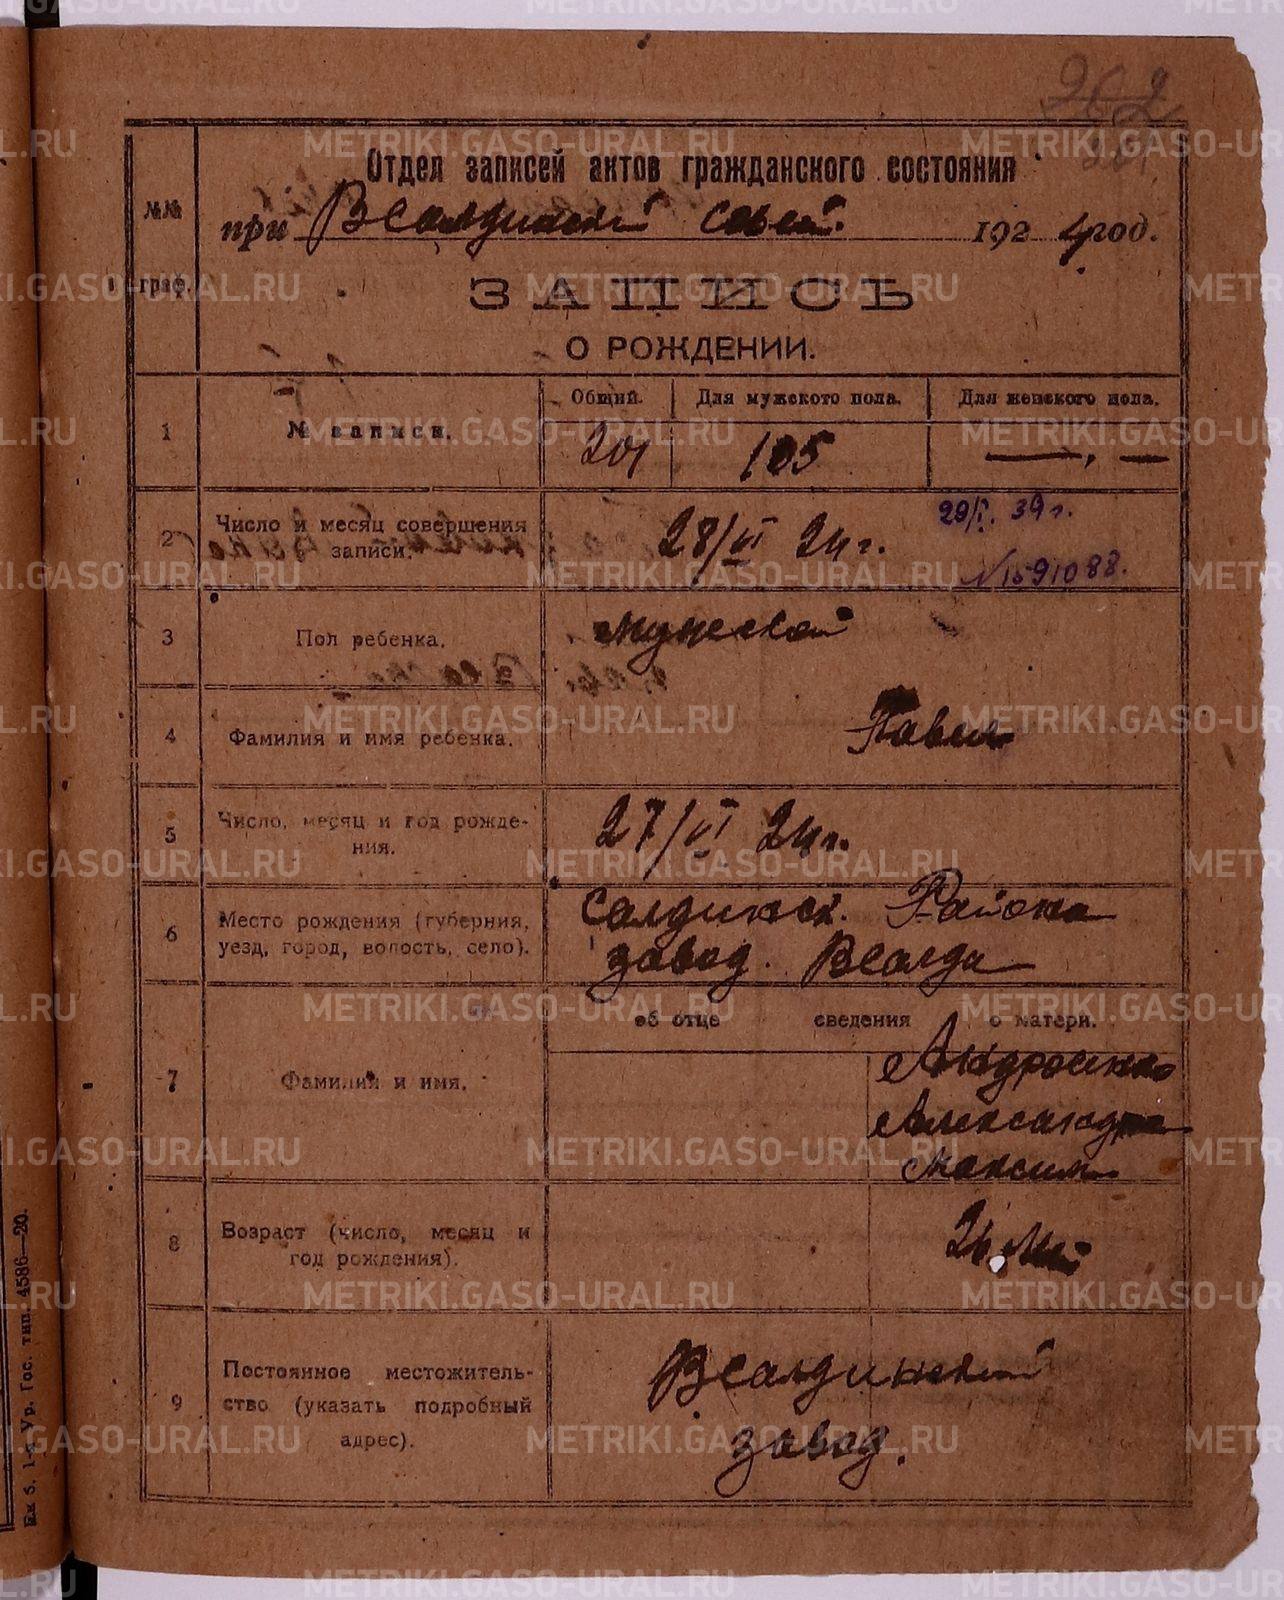 202
201
Отдел записей актов гражданского состояния
при ВСалдинский 1924 год.
№№ граф.
ЗАПИСЬ
О РОЖДЕНИИ.
1 № записи. Общий. Для мужского пола. Для женского пола.
201 105 —, —
2 Число и месяц совершения записи. 28/VI 24 г. 29/I. 39 г.
№1591088.
3 Пол ребенка. мужской
4 Фамилия и имя ребенка. Павел
5 Число, месяц и год рожде-
ния. 27/VI 24 г.
6 Место рождения (губерния,
уезд, город, волость, село). Салдинск. Района
завод. ВСалда
об отце сведения о матери.
7 Фамилия и имя.
Александра
Максим
8 Возраст (число, месяц и
год рождения). 26 лет
9 Постоянное местожитель-
ство (указать подробный
адрес). ВСалдинский
завод.
1-я Ур. Гос. тип. 4586—20.
METRIKI.GASO-URAL.RU